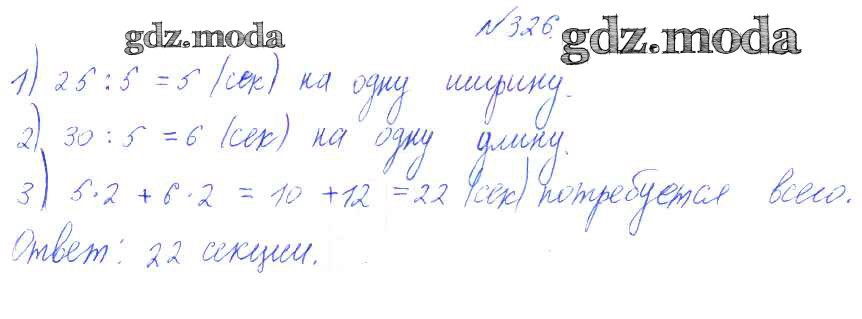 №326.
gdz.moda gdz.moda
1) 25 : 5 = 5 (сек) на одну ширину.
2) 30 : 5 = 6 (сек) на одну длину.
3) 5·2 + 6·2 = 10 + 12 = 22 (сек) потребуется всего.
Ответ: 22 секции.